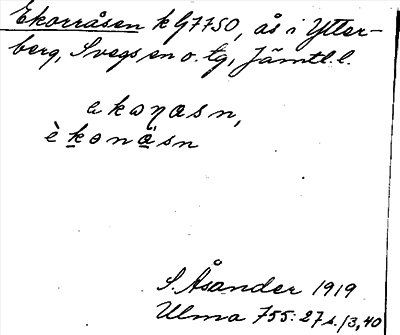 Ekorråsen k G7750, ås i Ytter-
berg, Svegs sn o. tg, Jämtl. l.
ekoɳɑsn,
è konɑ̈sn
S. Åsander 1919
Ulma 755: 27 s. 13,40